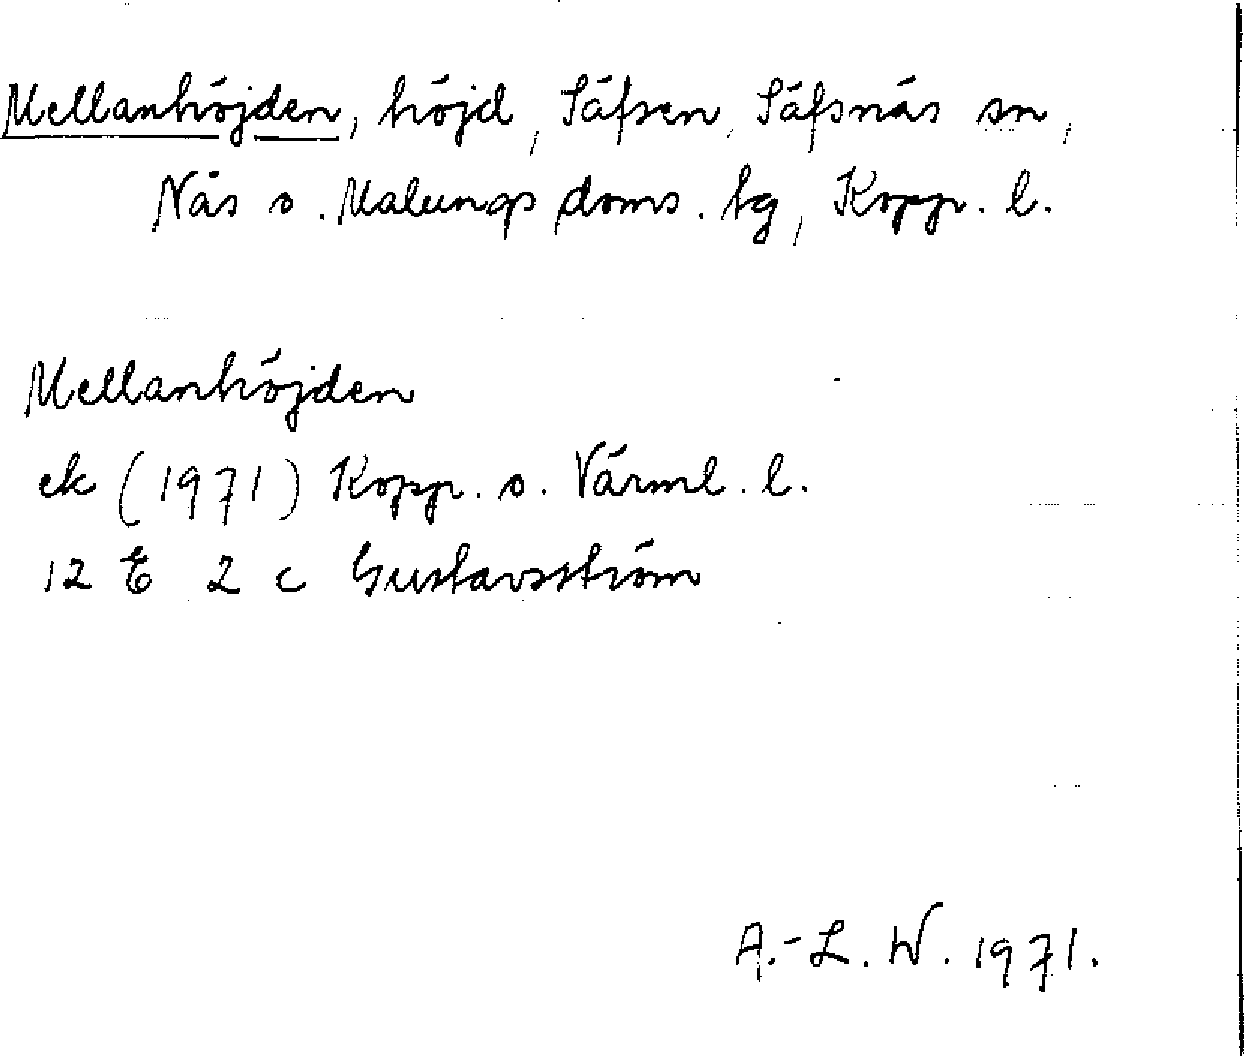 Mellanhöjden, höjd, Säfsen, Säfsnäs sn,
Nås o. Malungs doms. tg, Kopp. l.
Mellanhöjden
ek (1971) Kopp. o. Värml. l.
12 E 2 c Gustavsström
A.-L. W. 1971.